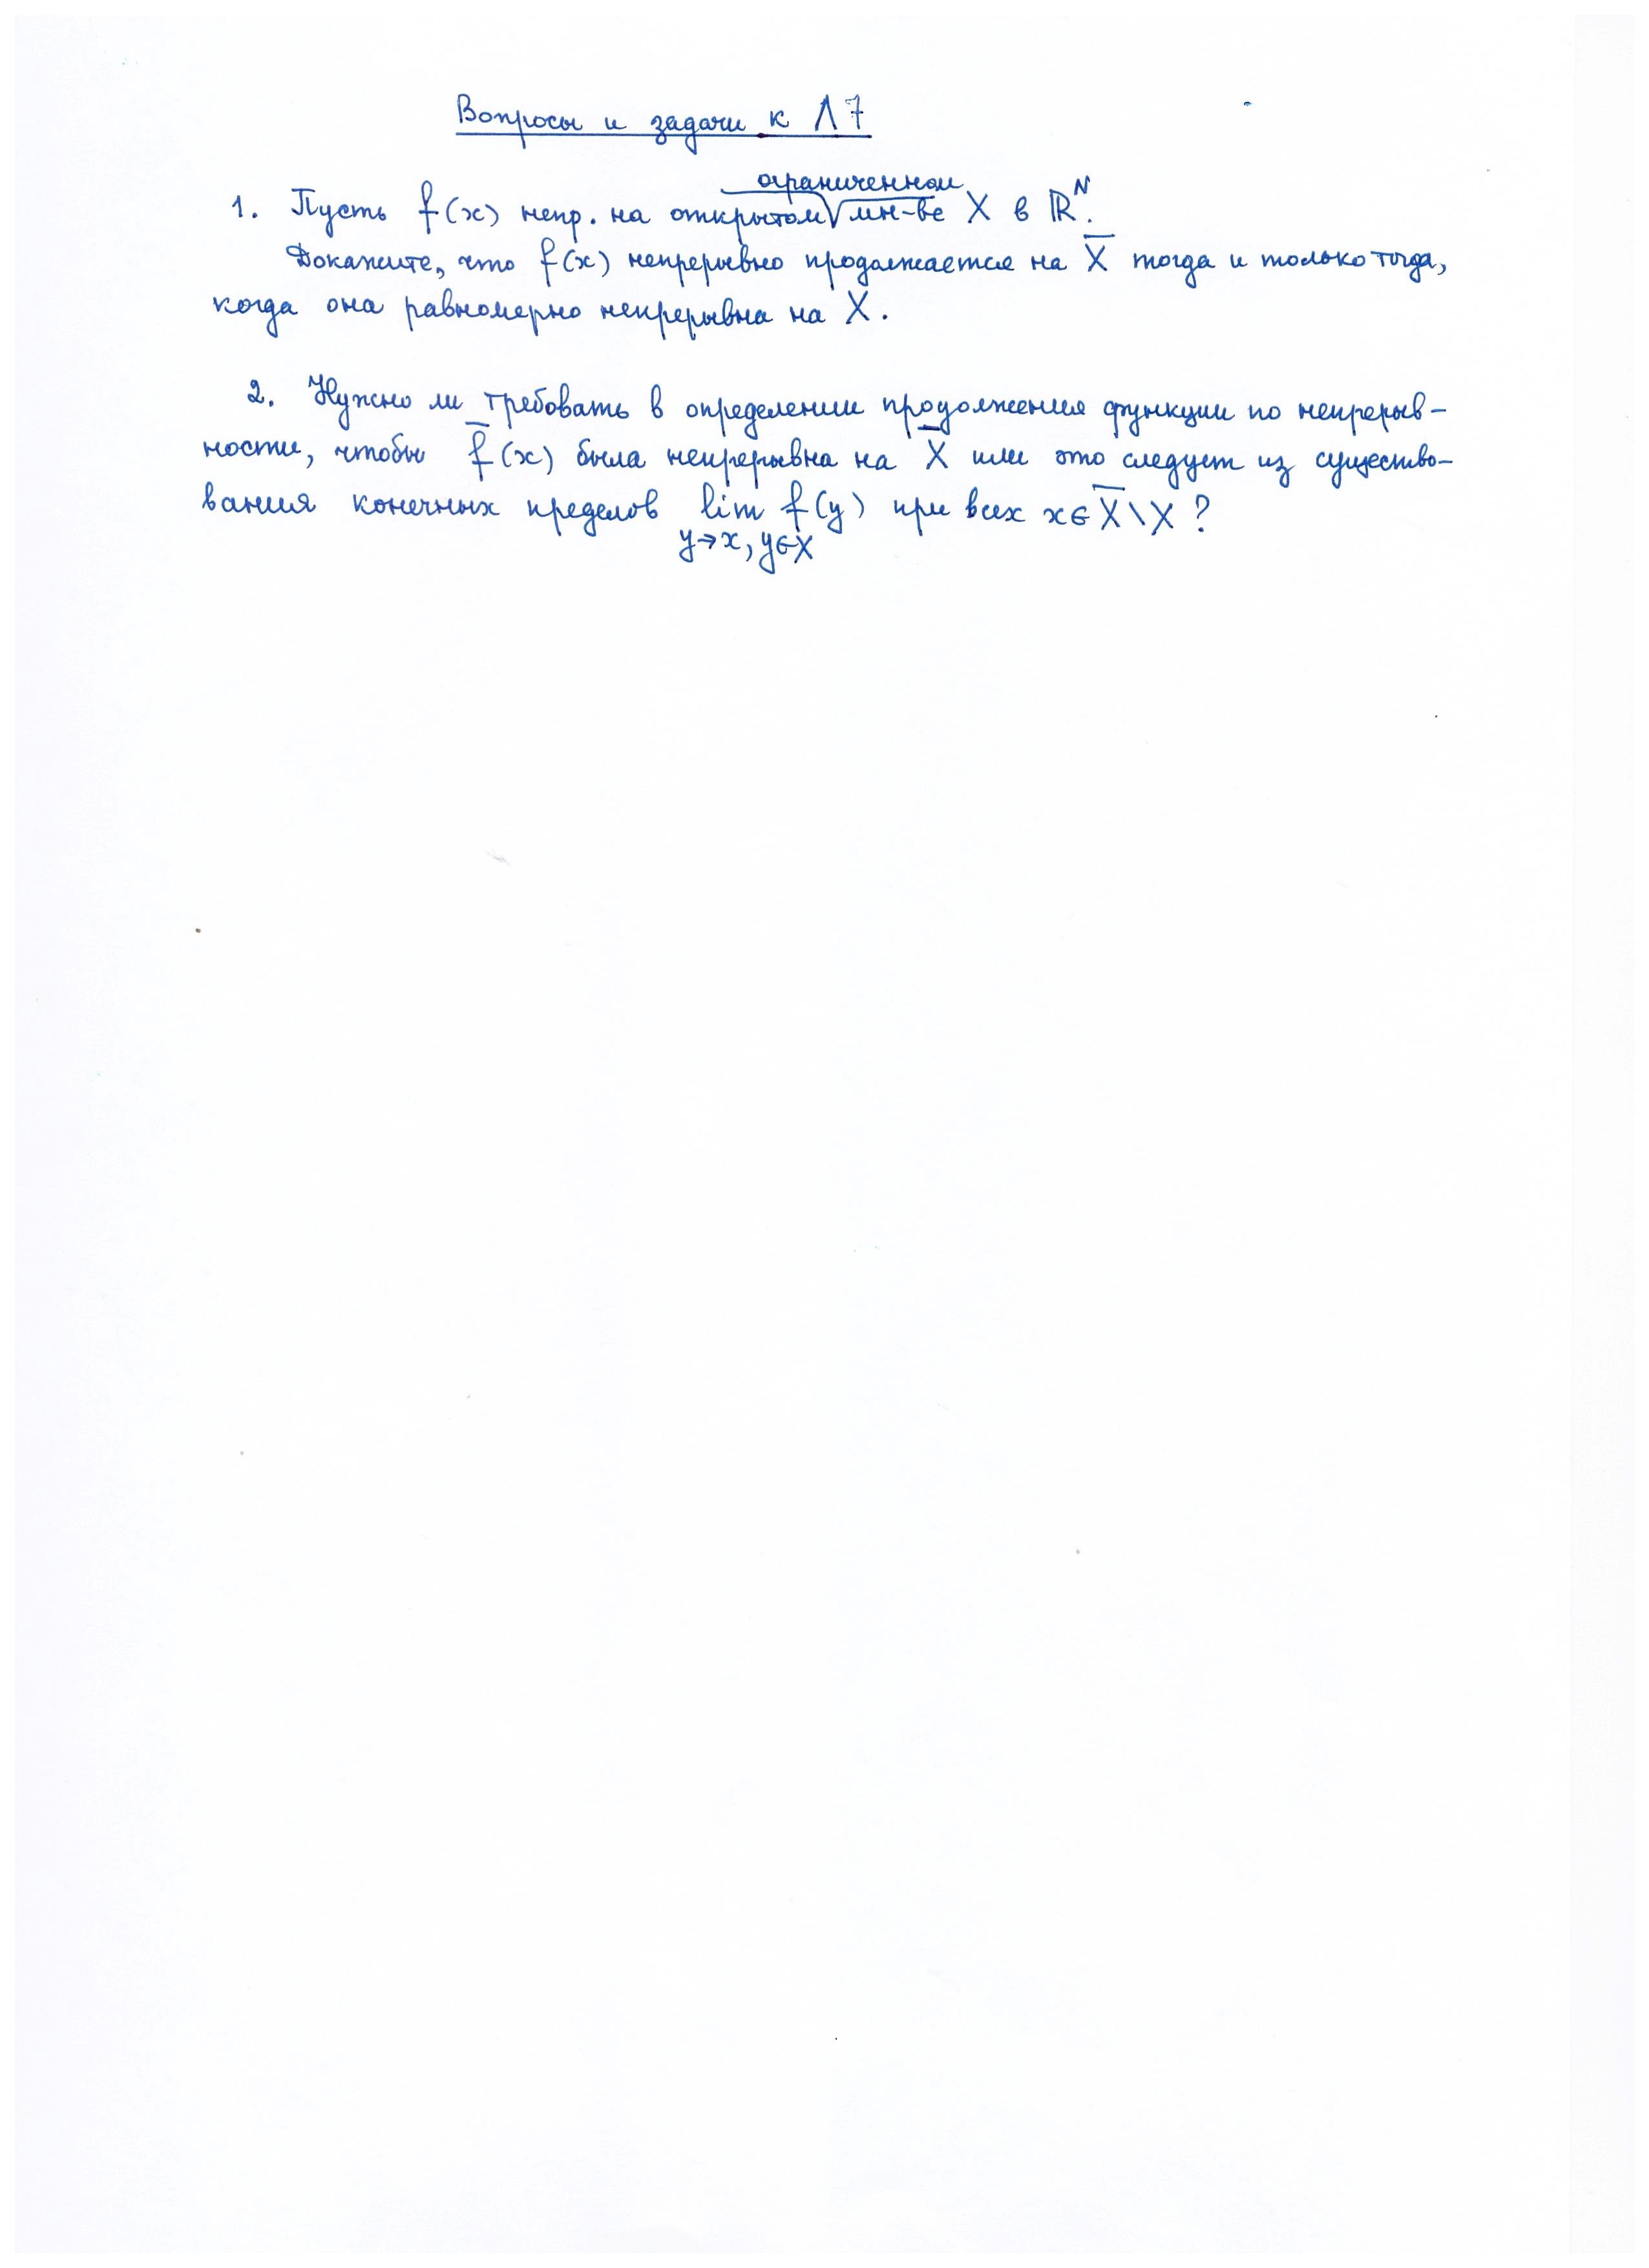 Вопросы и задачи к Л7
1. Пусть f(x) непр. на открытом ограниченном мн-ве X в ℝᴺ.
Докажите, что f(x) непрерывно продолжается на X̅ тогда и только тогда,
когда она равномерно непрерывна на X.
2. Нужно ли требовать в определении продолжения функции по непрерыв-
ности, чтобы f̅(x) была непрерывна на X̅ или это следует из существо-
вания конечных пределов lim f(y) при всех x∈X̅\X ?
y→x, y∈X